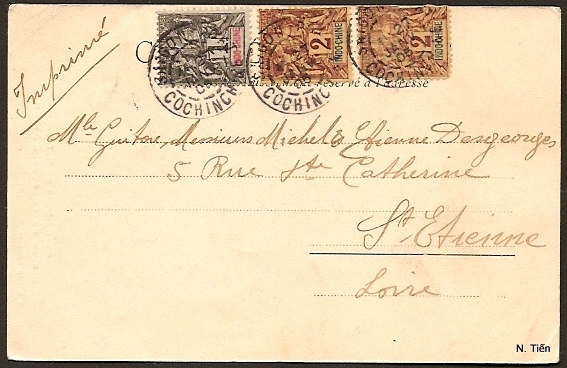 Imprimé
1
2 INDOCHINE
2 INDOCHINE
COCHINCH
COCHINC
COCH
réservé à l'adresse
Mlle Guitare, Messieurs Michel & Etienne Desgeorges
5 Rue Ste Catherine
St. Etienne
Loire
N. Tiến